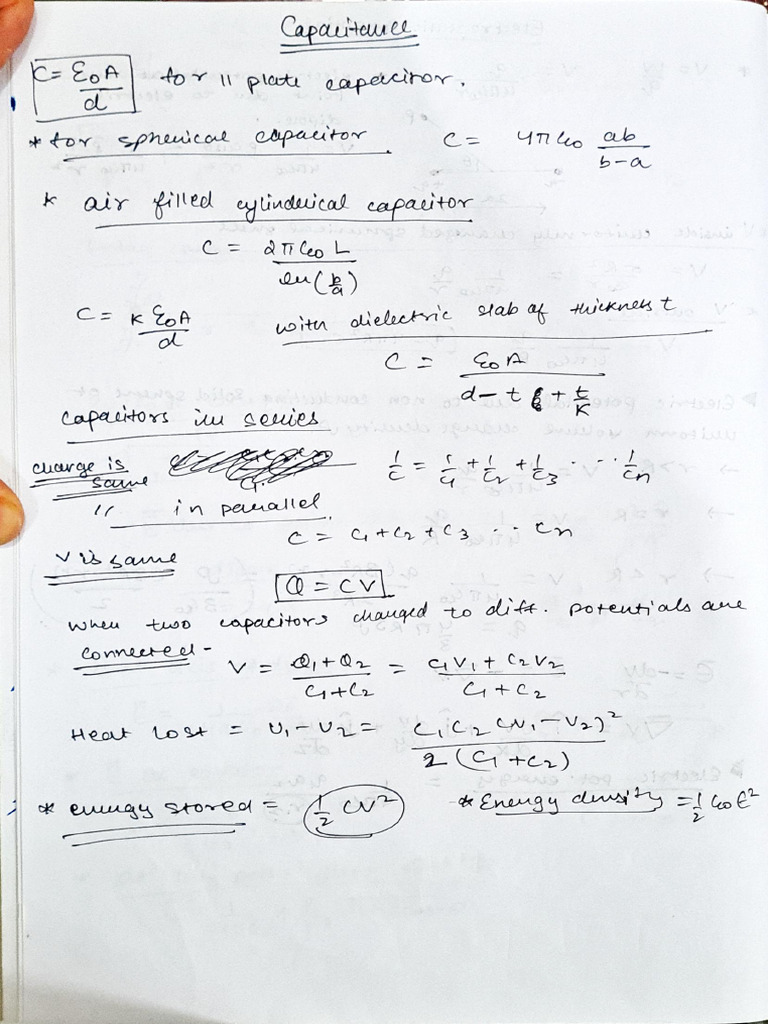 Capacitance
C = ε₀A/d for || plate capacitor.
* for spherical capacitor C = 4π∈₀ ab/(b-a)
* air filled cylinderical capacitor
C = 2π∈₀L / ln(b/a)
C = K ε₀A/d with dielectric slab of thickness t
C = ε₀A / (d - t + t/K)
Capacitors in series
charge is same 1/C = 1/C₁ + 1/C₂ + 1/C₃ . . . 1/Cn
" in parallel
C = C₁ + C₂ + C₃ . . Cn
V is same
Q = CV
When two capacitors charged to diff. potentials are
connected - V = (Q₁ + Q₂)/(C₁ + C₂) = (C₁V₁ + C₂V₂)/(C₁ + C₂)
Heat lost = U₁ - U₂ = C₁C₂(V₁ - V₂)² / 2(C₁ + C₂)
* energy stored = 1/2 CV² * Energy density = 1/2 ∈₀E²